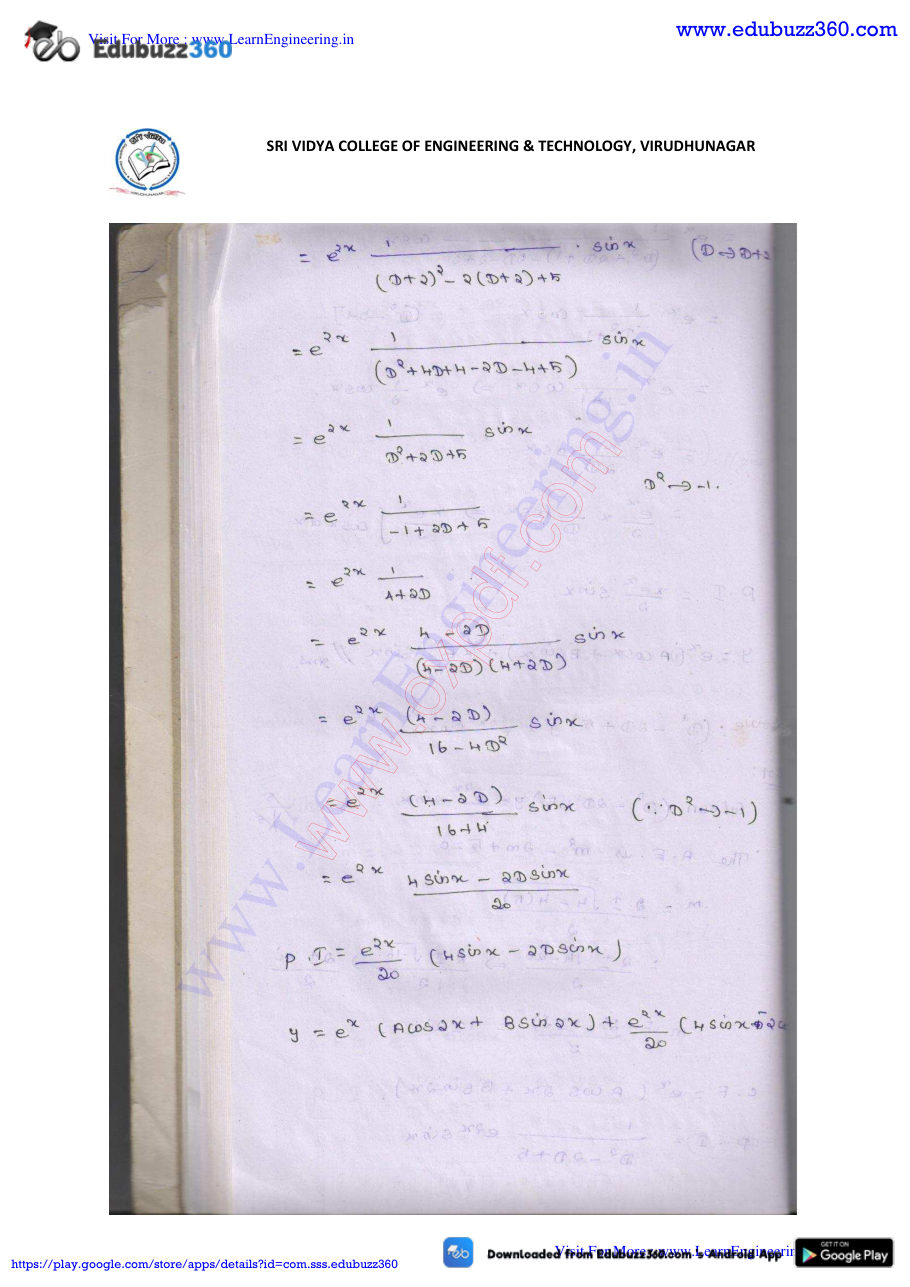 Visit For More : www.LearnEngineering.in
Edubuzz360
www.edubuzz360.com
SRI VIDYA COLLEGE OF ENGINEERING & TECHNOLOGY, VIRUDHUNAGAR
VIRUDHUNAGAR
= e^{2x} 1/((D+2)^2 - 2(D+2)+5) . sinx (D→D+2
= e^{2x} 1/(D^2+4D+4-2D-4+5) sinx
= e^{2x} 1/(D^2+2D+5) sinx
D^2→-1.
= e^{2x} 1/(-1+2D+5)
= e^{2x} 1/(4+2D)
= e^{2x} (4-2D)/((4-2D)(4+2D)) sinx
= e^{2x} (4-2D)/(16-4D^2) sinx
= e^{2x} (4-2D)/(16+4) sinx (∵ D^2→-1)
= e^{2x} (4sinx - 2Dsinx)/20
P.I = e^{2x}/20 (4sinx - 2Dsinx)
y = e^x (Acos2x + Bsin2x) + e^{2x}/20 (4sinx
www.LearnEngineering.in
www.oxpdf.com
https://play.google.com/store/apps/details?id=com.sss.edubuzz360
Downloaded from Edubuzz360.com 's Android App
Visit For More : www.LearnEngineerin
GET IT ON
Google Play